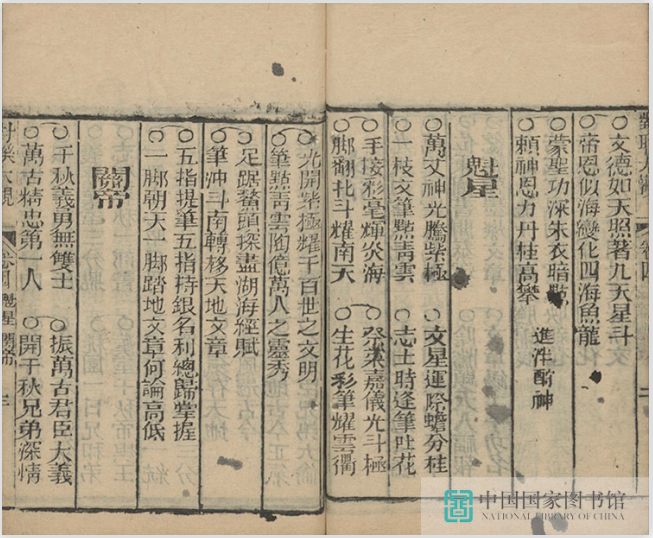 文德如天照著九天星斗
帝恩似海變化四海魚龍
蒙聖功深朱衣暗點 進泮酧神
賴神恩力丹桂高攀
魁星
萬丈神光騰紫極 文星運際蟾分桂
一枝文筆點青雲 志士時逢筆吐花
手接彩毫輝炎海 祭菜嘉儀光斗極
脚翻北斗耀南天 生花彩筆耀雲衢
光開紫極耀千百世之文明
筆點青雲陶億萬人之靈秀
足踞鰲頭探盡湖海經賦
筆沖斗南轉移天地文章
五指提筆五指持銀名利總歸掌握
一脚朝天一脚踏地文章何論高低
關帝
千秋義勇無雙士 振萬古君臣大義
萬古精忠第一人 開千秋兄弟深情
中国国家图书馆
NATIONAL LIBRARY OF CHINA